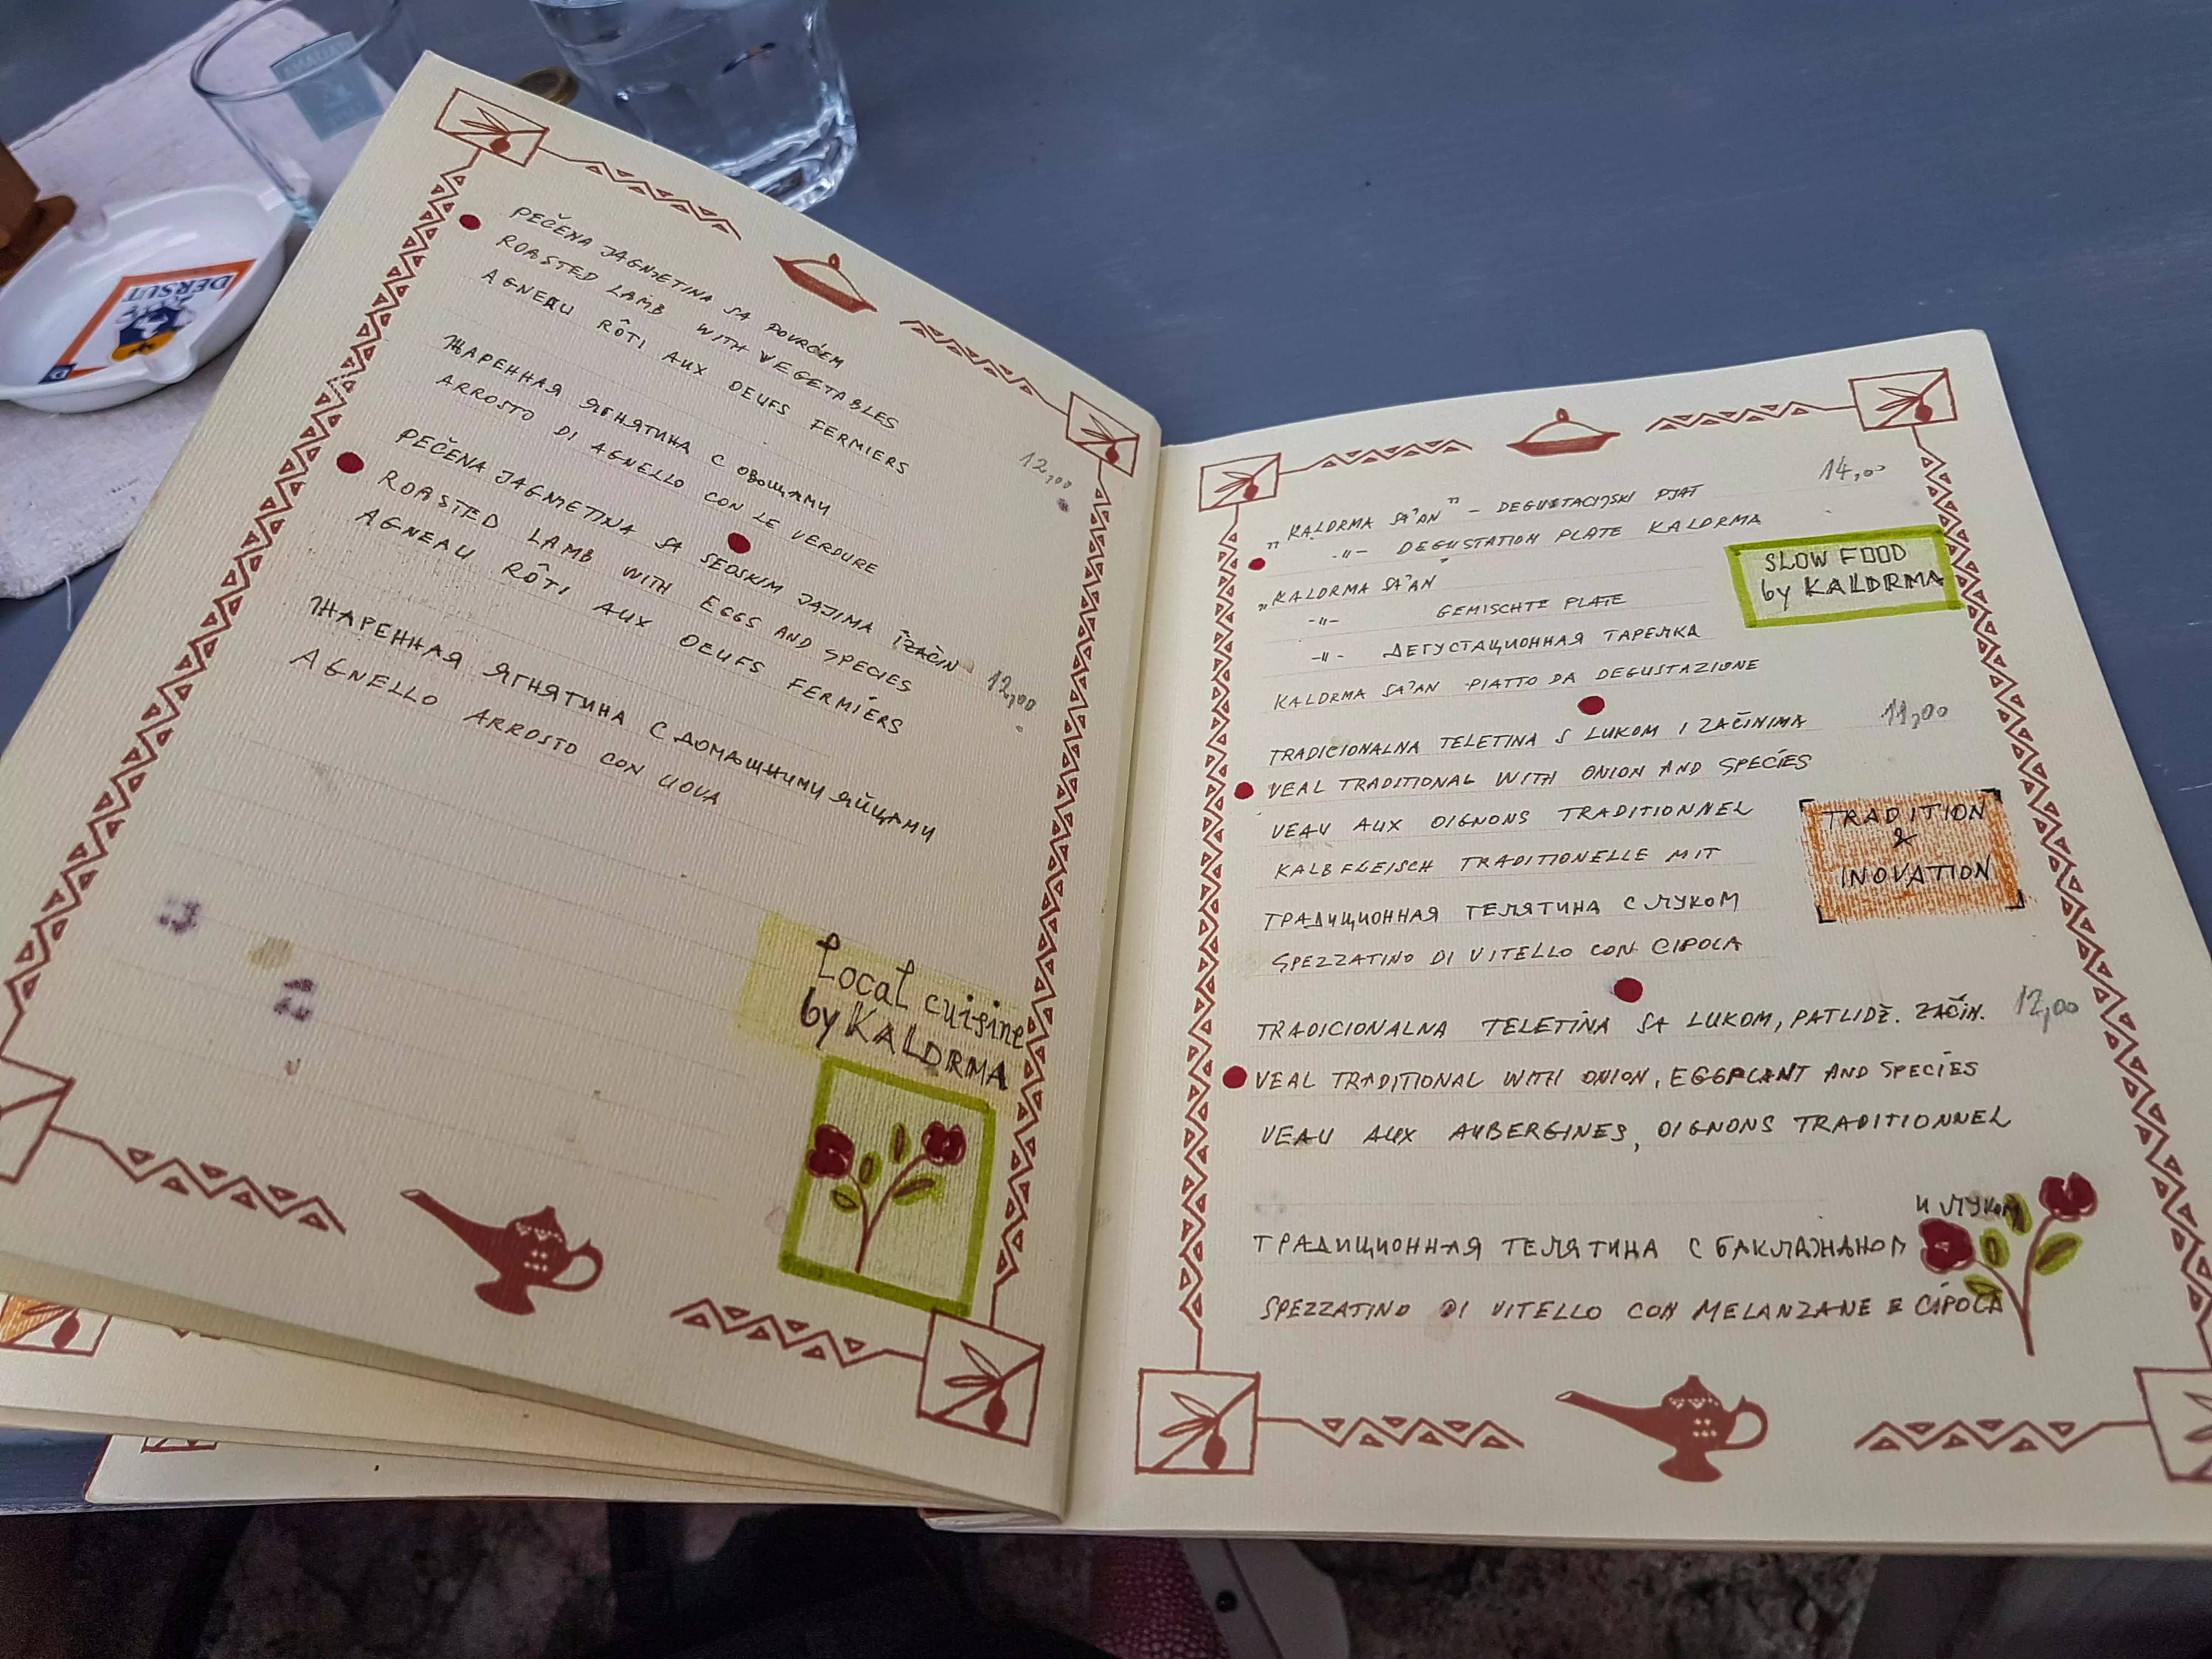 PEČENA JAGNJETINA SA POVRĆEM
ROASTED LAMB WITH VEGETABLES
AGNEAU RÔTI AUX OEUFS FERMIERS
12,00
ЖАРЕННАЯ ЯГНЯТИНА С ОВОЩАМИ
ARROSTO DI AGNELLO CON LE VERDURE
PEČENA JAGNJETINA SA SEOSKIM JAJIMA I ZAČIN
ROASTED LAMB WITH EGGS AND SPECIES
12,00
AGNEAU RÔTI AUX OEUFS FERMIÉRS
ЖАРЕННАЯ ЯГНЯТИНА С ДОМАШНИМИ ЯЙЦАМИ
AGNELLO ARROSTO CON UOVA
Local cuisine
by KALDRMA
"KALDRMA SA'AN" - DEGUSTACIJSKI PJAT
14,00
-"- DEGUSTATION PLATE KALDRMA
"KALDRMA SA'AN"
-"- GEMISCHTE PLATE
-"- ДЕГУСТАЦИОННАЯ ТАРЕЛКА
KALDRMA SA'AN PIATTO DA DEGUSTAZIONE
SLOW FOOD
by KALDRMA
TRADICIONALNA TELETINA S LUKOM I ZAČINIMA
11,00
VEAL TRADITIONAL WITH ONION AND SPECIES
VEAU AUX OIGNONS TRADITIONNEL
KALBFLEISCH TRADITIONELLE MIT
ТРАДИЦИОННАЯ ТЕЛЯТИНА С ЛУКОМ
SPEZZATINO DI VITELLO CON CIPOLA
TRADITION
&
INOVATION
TRADICIONALNA TELETINA SA LUKOM, PATLIDŽ. ZAČIN.
12,00
VEAL TRADITIONAL WITH ONION, EGGPLANT AND SPECIES
VEAU AUX AUBERGINES, OIGNONS TRADITIONNEL
И ЛУКОМ
ТРАДИЦИОННАЯ ТЕЛЯТИНА С БАКЛАЖАНОМ
SPEZZATINO DI VITELLO CON MELANZANE E CIPOLA
DERSUT